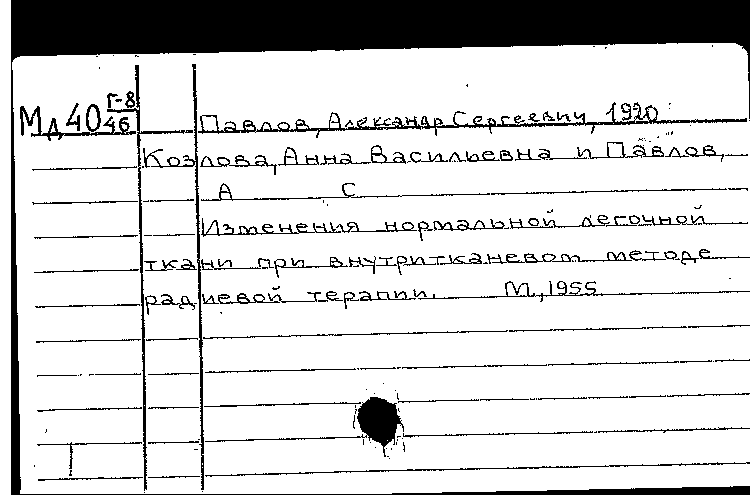 Мд40 Г-8/46 Павлов, Александр Сергеевич, 1920
Козлова, Анна Васильевна и Павлов,
А С
Изменения нормальной легочной
ткани при внутритканевом методе
радиевой терапии. М., 1955